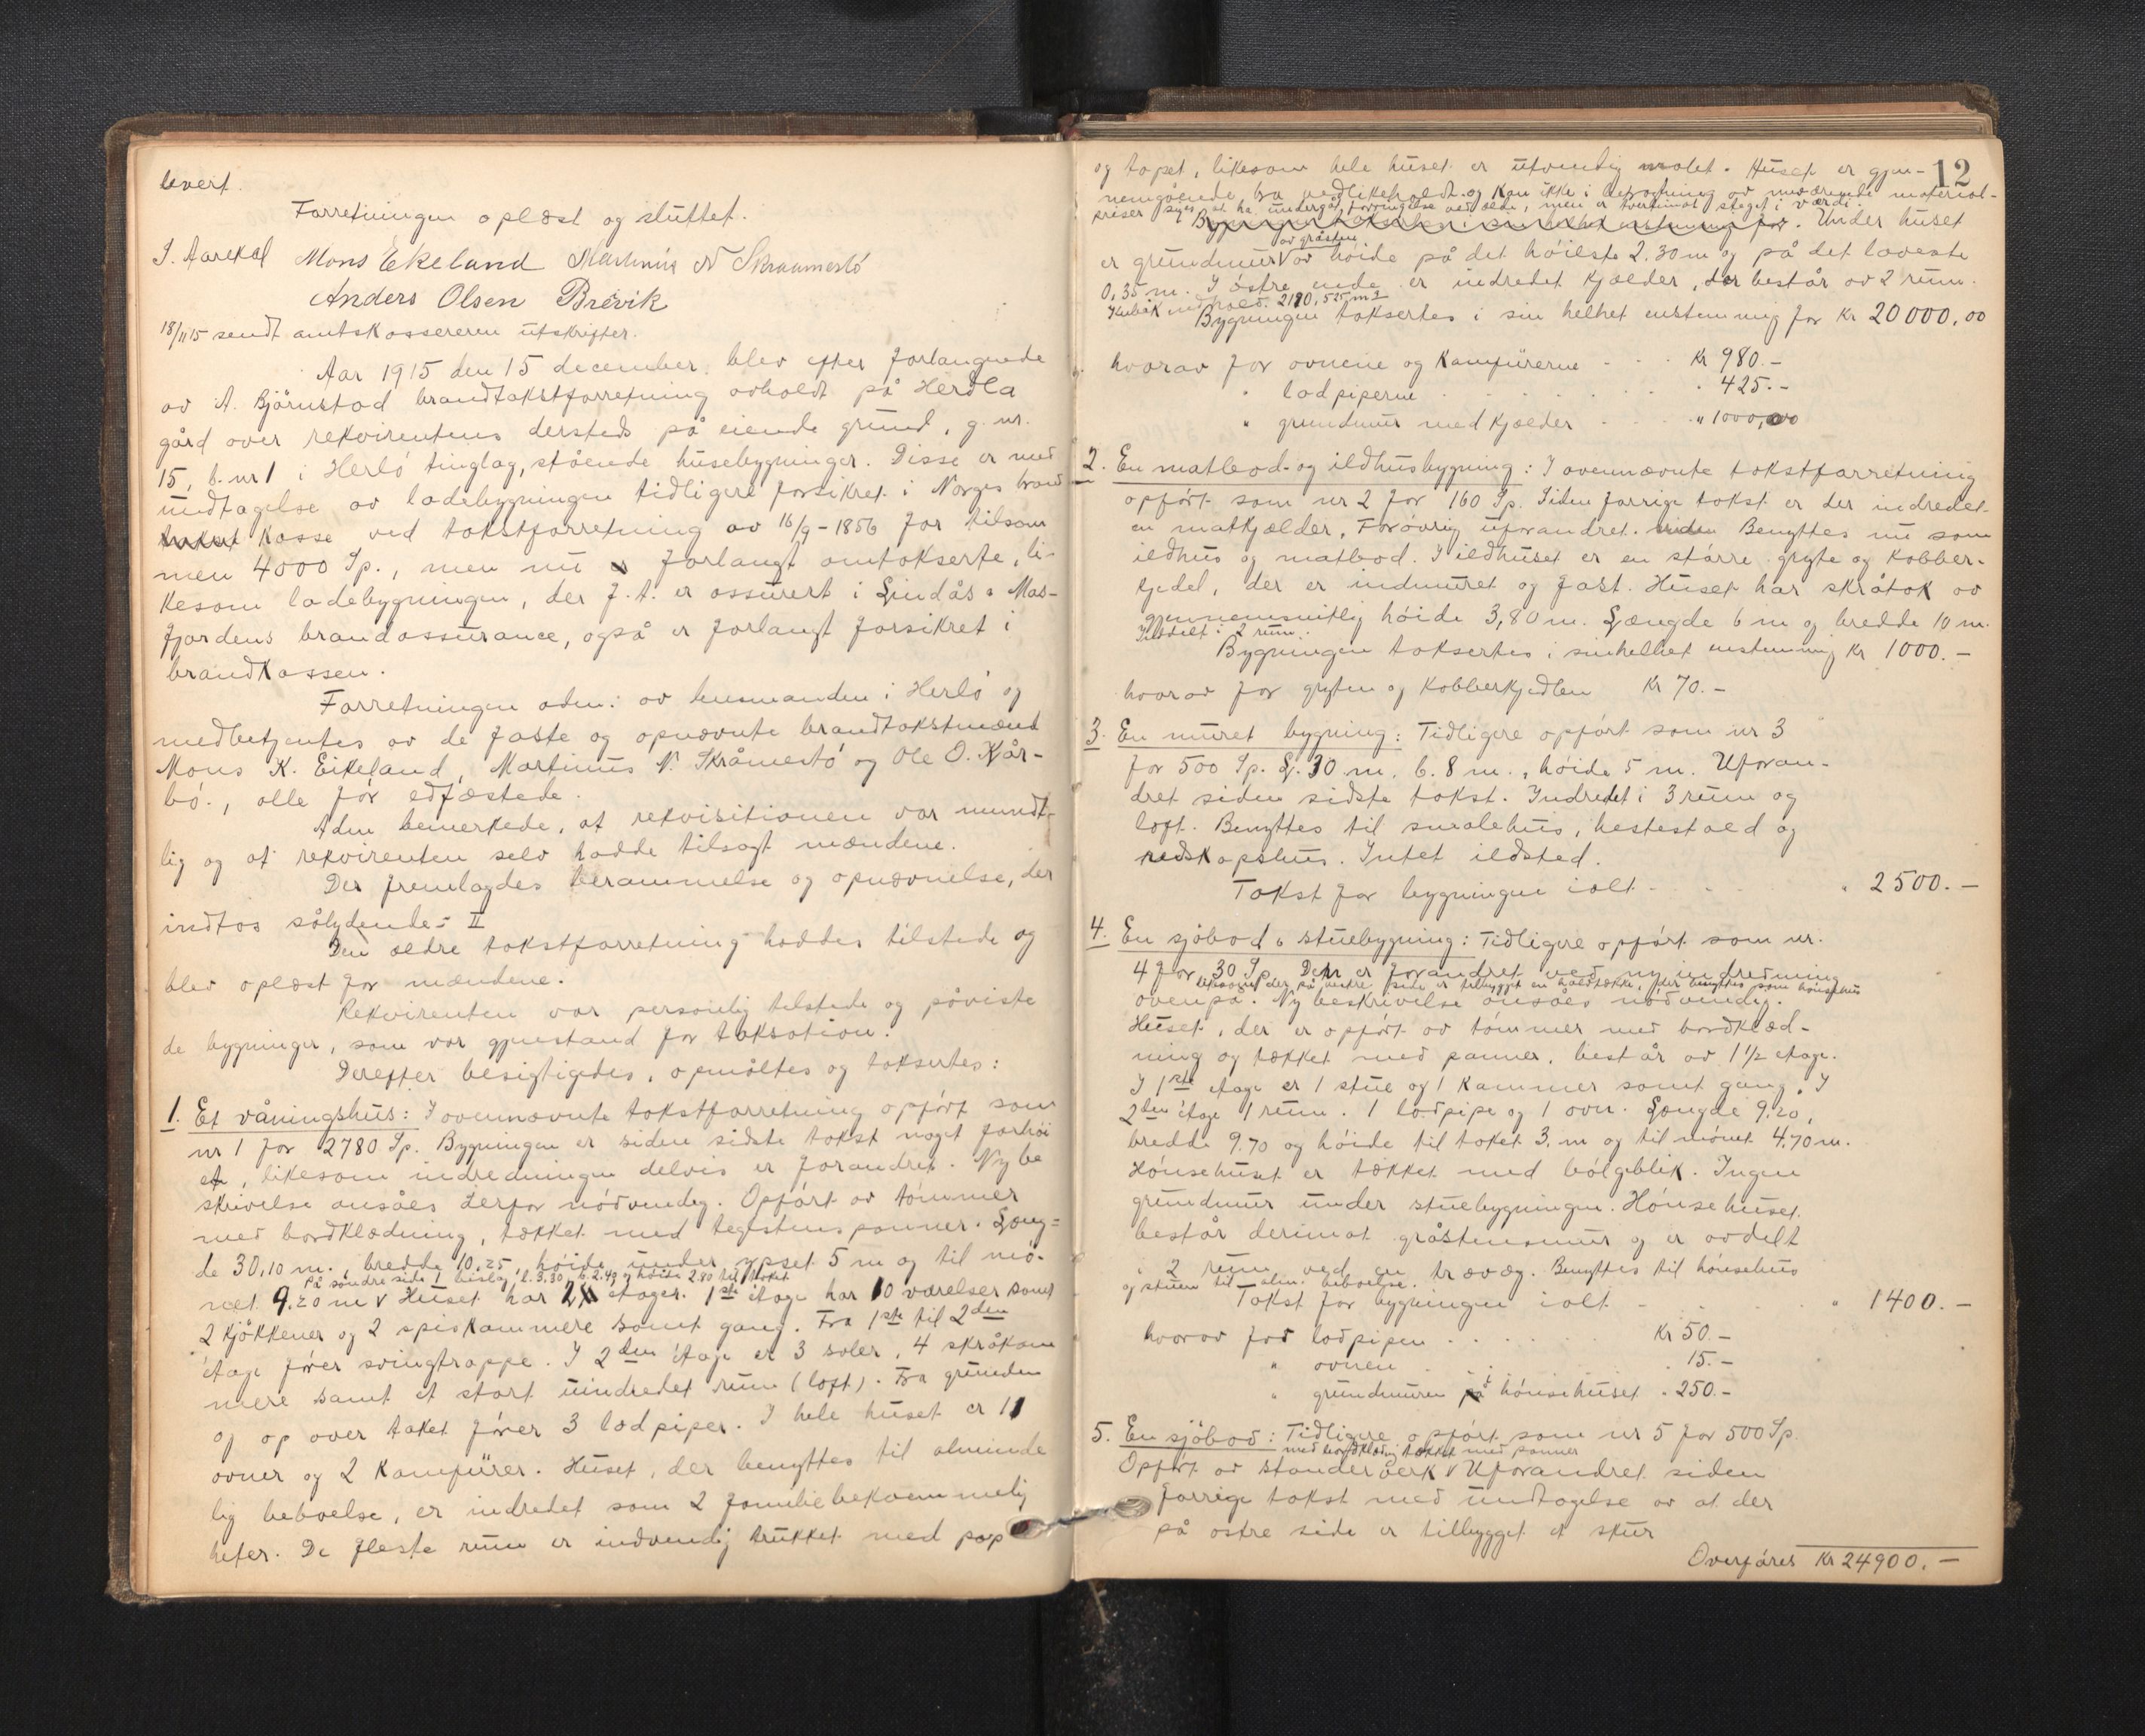 levert.
Forretningen oplæst og sluttet.
J. Aarekol Mons Ekeland Martinus N Skraamestö
Anders Olsen Brevik
18/11 15 sendt amtskassereren utskrifter.
Aar 1915 den 15 december, blev efter forlangende
av A. Björnstad brandtakstforretning avholdt på Herdla
gård over rekvirentens dersteds på eiende grund, g. nr.
15, b. nr 1 i Herlö tinglag, stående husebygninger. Disse er med
undtagelse av ladebygningen tidligere forsikret i Norges brand
kasse ved takstforretning av 16/9-1856 for tilsam
men 4000 Sp., men nu forlangt omtakserte, li-
kesom ladebygningen, der f. t. er assurert i Lindås & Mas-
fjordens brandassurance, også er forlangt forsikret i
brandkassen.
Forretningen adm. av lensmanden i Herlö og
medbetjentes av de faste og opnævnte brandtakstmænd
Mons K. Eikeland, Martinus N. Skråmestö og Ole O. Kår-
bö., alle för edfæstede.
Adm bemerkede, at rekvisitionen var mundt-
lig og at rekvirenten selv hadde tilsagt mændene.
Der fremlagdes berammelse og opnævnelse, der
indtas sålydende: II
Den ældre takstforretning haddes tilstede og
blev oplæst for mændene.
Rekvirenten var personlig tilstede og påviste
de bygninger, som var gjenstand for taksation.
Derefter besigtigedes, opmåltes og taksertes:
1. Et våningshus: I ovennævnte takstforretning opfört som
nr 1 for 2780 Sp. Bygningen er siden sidste takst noget forhöi
et, likesom indredningen delvis er forandret. Ny be
skrivelse ansåes derfor nödvendig. Opfört av tömmer
med bordklædning, tækket med teglstens panner. Læng-
de 30,10 m., bredde 10,25, höide under gipset 5 m og til mö-
På söndre side 1 bislag, l. 3.30, b. 2.40 og höide 2.80 til taket
net 9.20 m V Huset har 2 etager. 1ste etage har 10 værelser samt
2 kjökkener og 2 spiskammere samt gang. Fra 1ste til 2den
etage förer svingtrappe. I 2den etage er 3 saler, 4 skråkam
mere samt et stort uindredet rum (loft). Fra grunden
og op over taket förer 3 lodpiper. I hele huset er 11
ovner og 2 kamfürer. Huset, der benyttes til alminde
lig beboelse, er indredet som 2 familiebekvemmelig
heter. De fleste rum er indvendig trukket med pap
12
og tapet, likesom hele huset er utvendig malet. Huset er gjen-
nemgående bra vedlikeholdt og kan ikke i betragtning av nuværende material-
priser siges at ha undergåt forringelse ved ælde, men er tvertimot steget i værdi.
Bygningen taksertes i sin helhet enstemmig for. Under huset
av gråsten
er grundmur V av höide på det höieste 2.30 m og på det laveste
0,35 m. I östre ende er indredet kjælder, der består av 2 rum.
Kubikindhold. 2180,525 m3
Bygningen taksertes i sin helhet enstemmig for kr 20000,00
hvorav for ovnene og kamfürerne kr 980.-
" lodpiperne " 425.-
" grundmur med kjælder " 1000,00
2. En matbod- og ildhusbygning: I ovennævnte takstforretning
opfört som nr 2 for 160 Sp. Siden forrige takst er der indredet
en matkjælder. Forövrig uforandret. Benyttes nu som
ildhus og matbod. I ildhuset er en större gryte og kobber-
kjedel, der er indmuret og fast. Huset har skråtak av
gjennemsnitlig höide 3,80 m. Længde 6 m og bredde 10 m.
Inddelt i 2 rum.
Bygningen taksertes i sin helhet enstemmig kr 1000.-
hvorav for gryten og kobberkjedlen kr 70.-
3. En muret bygning: Tidligere opfört som nr 3
for 500 Sp. L. 30 m, b. 8 m., höide 5 m. Uforan-
dret siden sidste takst. Indredet i 3 rum og
loft. Benyttes til smalehus, hestestald og
redskapshus. Intet ildsted.
Takst for bygningen ialt " 2500.-
4. En sjöbod & stuebygning: Tidligere opfört som nr.
4 for 30 Sp. Den er forandret ved ny indredning
likesom der på östre side er tilbygget en halvtække, der benyttes som hönsehus
ovenpå. Ny beskrivelse ansåes nödvendig.
Huset, der er opfört av tömmer med bordklæd-
ning og tækket med panner, består av 1 1/2 etage.
I 1ste etage er 1 stue og 1 kammer samt gang. I
2den etage 1 rum. 1 lodpipe og 1 ovn. Længde 9.20,
bredde 9.70 og höide til taket 3. m og til mönet 4.70 m.
Hönsehuset er tækket med bölgeblik. Ingen
grundmur under stuebygningen. Hönsehuset
består derimot gråstensmur og er avdelt
i 2 rum ved en trævæg. Benyttes til hönsehus
og stuen til alm. beboelse.
Takst for bygningen ialt " 1400.-
hvorav for lodpipen kr 50.-
" ovnen " 15.-
" grundmuren i hönsehuset " 250.-
5. En sjöbod: Tidligere opfört som nr 5 for 500 Sp.
med bordklædning tækket med panner
Opfört av standerverk V Uforandret siden
forrige takst med undtagelse av at der
på östre side er tilbygget et skur
Overföres Kr 24900.-